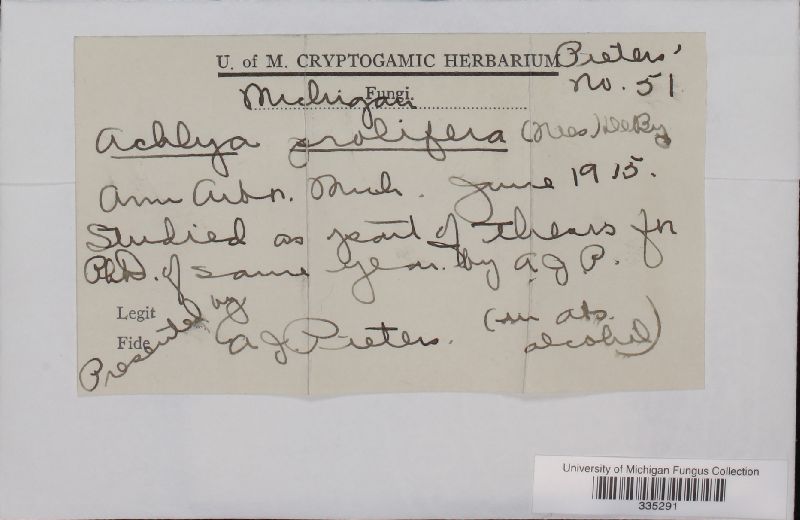 U. of M. CRYPTOGAMIC HERBARIUM
Pieters'
no. 51
Fungi.
Michigan
Achlya prolifera (Nees) DeBy
Ann Arbor. Mich. June 1915.
Studied as part of thesis for
PhD. of same year. by A J P.
Legit
Fide
Presented by
A J Pieters.
(in abs.
alcohol)
University of Michigan Fungus Collection
335291